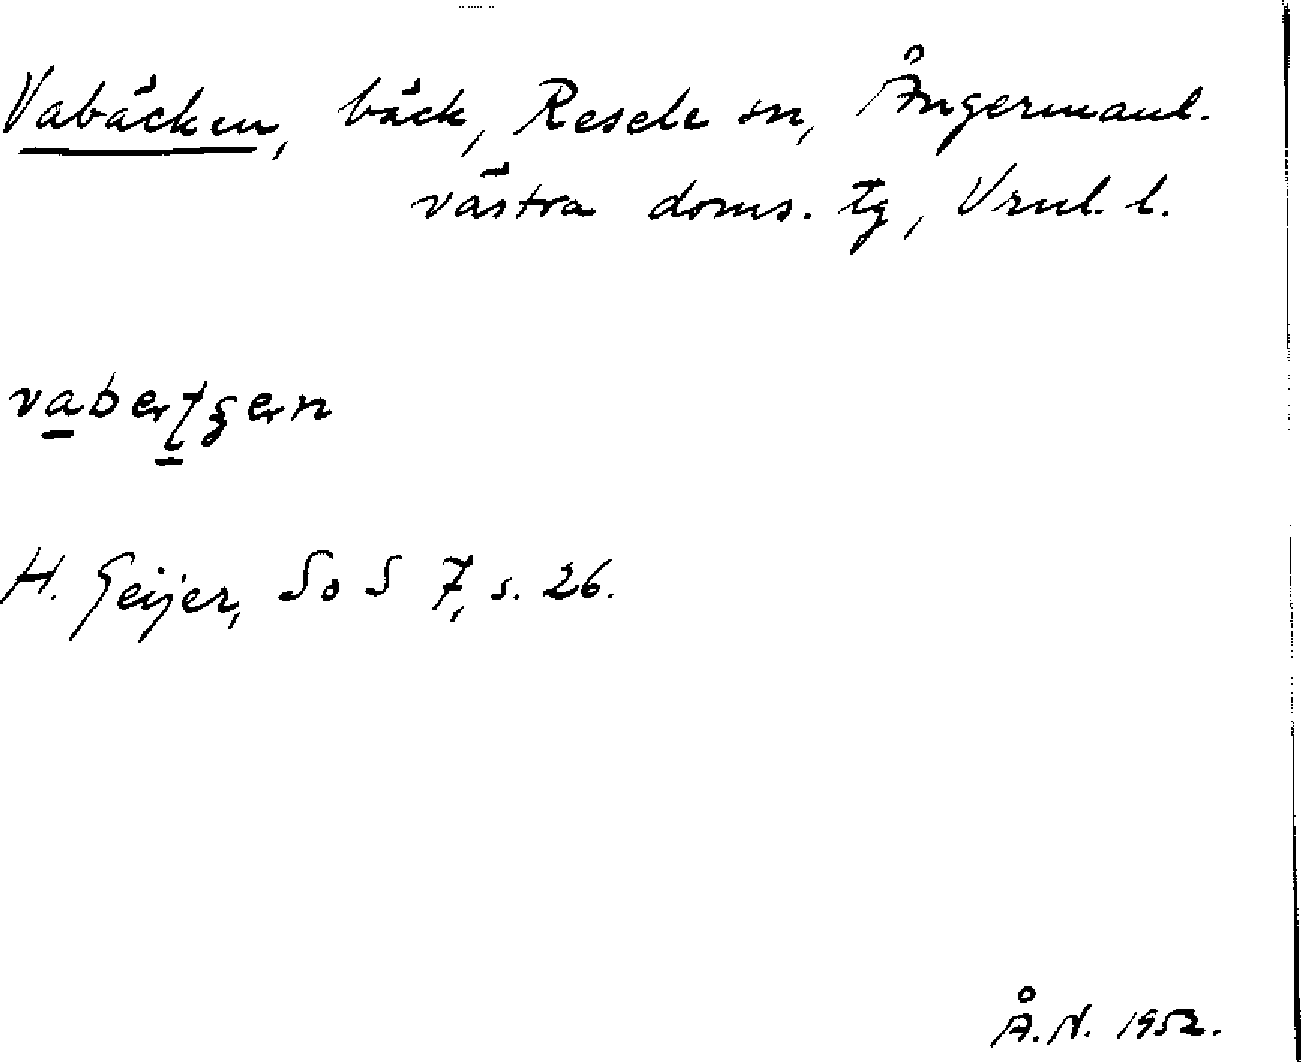 Vabäcken, bäck, Resele sn, Ångermanl.
västra doms. tg, Vrnl. l.
H. Geijer, SoS 7, s. 26.
Å.N. 1952.